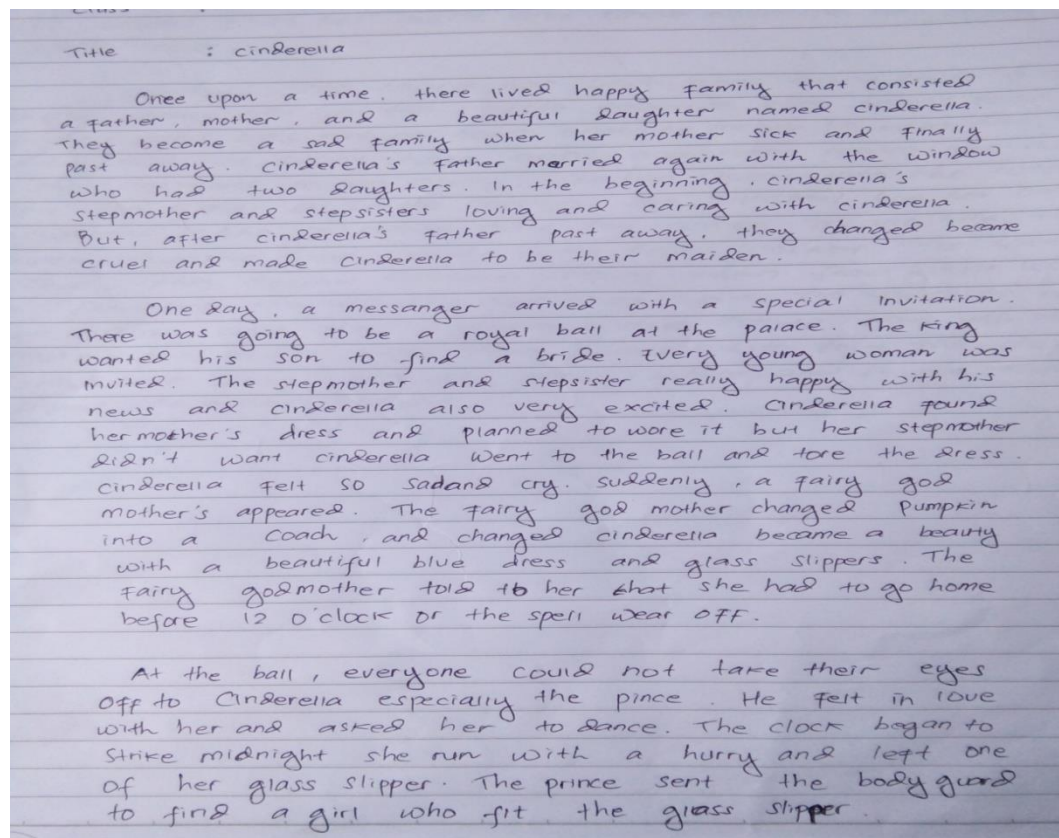 Title : Cinderella
Once upon a time, there lived happy family that consisted
a father, mother, and a beautiful daughter named cinderella.
They become a sad family when her mother sick and finally
past away. Cinderella's father married again with the window
who had two daughters. In the beginning, cinderella's
stepmother and stepsisters loving and caring with cinderella.
But, after cinderella's father past away, they changed became
cruel and made cinderella to be their maiden.
One day, a messanger arrived with a special invitation.
There was going to be a royal ball at the palace. The King
wanted his son to find a bride. Every young woman was
invited. The stepmother and stepsister really happy with his
news and cinderella also very excited. Cinderella found
her mother's dress and planned to wore it but her stepmother
didn't want cinderella went to the ball and tore the dress.
Cinderella felt so sadand cry. Suddenly, a fairy god
mother's appeared. The fairy god mother changed Pumpkin
into a coach, and changed cinderella became a beauty
with a beautiful blue dress and glass slippers. The
Fairy godmother told to her that she had to go home
before 12 o'clock or the spell wear off.
At the ball, everyone could not take their eyes
off to Cinderella especially the pince. He felt in love
with her and asked her to dance. The clock began to
strike midnight she run with a hurry and left one
of her glass slipper. The prince sent the body guard
to find a girl who fit the glass slipper